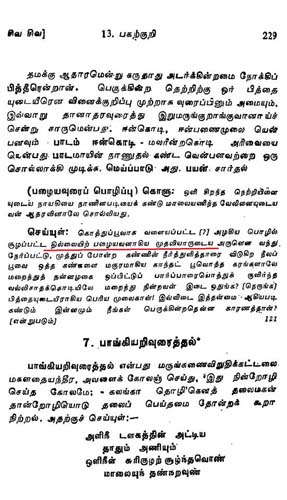 சிவ சிவ]
13. பகற்குறி
229
தமக்கு ஆதாரமென்று கருதாது அடர்க்கின்றமை நோக்கிப்
பித்தீரென்றான். பெருக்கின்ற தெற்றிற்கு ஓர் பித்தை
யுடையீரென வினைக்குறிப்பு முற்றாக வுரைப்பினும் அமையும்,
இவ்வாறு தானாதரவுரைத்து இறுமருங்குறாங்குவானாய்ச்
சென்று சாருமென்பது. ஈன்கொடி, ஈன்பணைமுலை யென்
பனவும் பாடம் ஈன்கொடி - மலரின்றகொடி அரிவையை
யென்பது பாடமாயின் நாணுதல் கண்ட வென்பவற்றை ஒரு
சொல்லாக்கி முடிக்க. மெய்ப்பாடு: அது. பயன்: சார்தல்
(பழையவுரைப் பொழிப்பு) கொளு: ஒளி சிறந்த நெற்றியினை
யுடைய நாயகியை நாணினபடியைக் கண்டு மாலையணிந்த வேலினையுடைய
வன் ஆதரவினாலே சொல்லியது.
செய்யுள்: கொத்துப்பூவாக வளையப்பட்ட [?] அழகிய பொழில்
சூழப்பட்ட தில்லையிற் பழையவனாகிய முதலியாருடைய அருளென வந்து,
நேர்ப்பட்டு, முத்துப் போன்ற கண்ணின் நீர்த்துளித்தாரை விடுகிற நீலப்
பூவை ஒத்த கண்ணை மதுரமாகிய காந்தட் பூவொத்த கரங்களாலே
மறைத்துத் தன்னழகை ஒப்பிட்டுப் பார்ப்பாரைபொத்துக் குளிர்ந்த
வல்லிசாதக்கொடியிலே மறைந்து நின்றவள் இடை ஒதுங்க! [நெருங்க]
பித்தையுடையிராகிய பெரிய முலைகாள்! இவ்விடை இத்தன்மை ஆகியபடி
கண்டும் இன்னமும் நீங்கள் பெருக்கின்றதென்ன காரணத்தான்?
[என்றுபடும்]
121
7. பாங்கியறிவுரைத்தல்*
பாங்கியறிவுரைத்தல் என்பது மருங்கணைவிறுதிக்கட்டலை
மகனதையந்திர, அவளைக் கோலஞ் செய்து, 'இது நின்றோழி
செய்த கோலமே; - கலங்கா தொழி'கெனத் தலைமகன்
தான்றோழியொடு தலைப் பெய்தமை தோன்றக் கூறா
நிற்றல். அதற்குச் செய்யுள்:—
அளிநீ டளகத்தின் அட்டிய
தாதும் அணியும்
ஒளிநீள் சுரிகுழற் சூழ்ந்தவொண்
மாலையுந் தண்நறவுண்